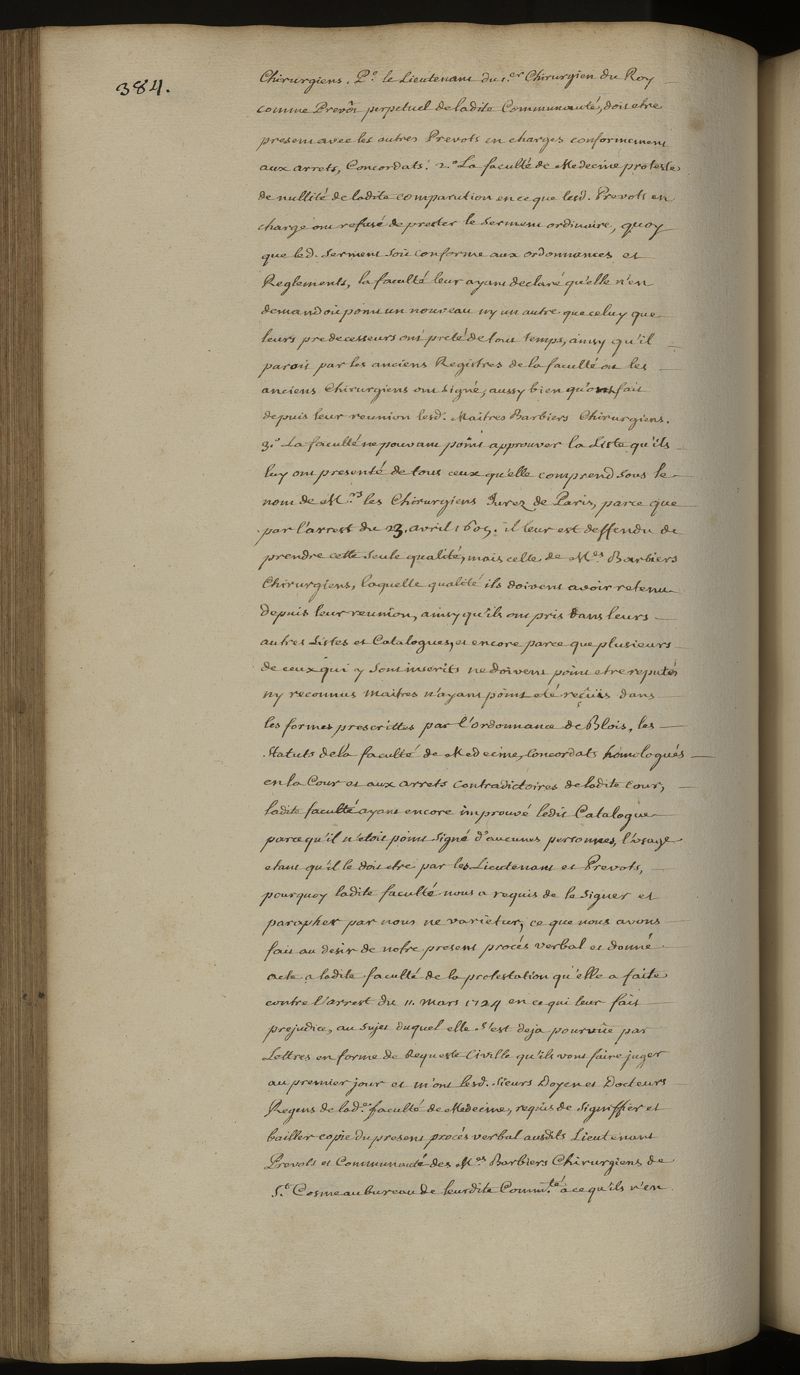 384.
Chirurgiens. P.º le Lieutenant du 1.er Chirurgien du Roy
comme Prevôt perpetuel de ladite Communauté, doit etre
present avec les autres Prevots en charges conformement
aux arrets, Concordats. 2.º La faculté de Medecine proteste
de nullité de ladite comparution en ce que lesd. Prevots en
charge ont refusé de prester le serment ordinaire, quoy
que led. serment soit conforme aux ordonnances et
Reglements, la faculté leur ayant declaré qu'elle n'en
demandoit point un nouveau ny un autre que celuy que
leurs predecesseurs ont preté de tout temps, ainsy qu'il
paroit par les anciens Registres de la faculté ou les
anciens Chirurgiens ont signé, aussy bien qu'ont fait
depuis leur reunion lesd. Maitres Barbiers Chirurgiens.
3.º La faculté ne pouvant point approuver la Liste qu'ils
luy ont presenté de tous ceux qu'elle comprend sous le
nom de M.rs les Chirurgiens Jurez de Paris, parce que
par l'arrest du 23. avril 1605. il leur est deffendu de
prendre cette seule qualité, mais celle de M.es Barbiers
Chirurgiens, laquelle qualité ils doivent avoir retenu
depuis leur reunion, ainsy qu'ils ont pris dans leurs
autres Listes et Catalogues, et encore parce que plusieurs
de ceux qui y sont inscrits ne doivent point etre reputés
ny reconnus maitres n'ayant point eté reçûs dans
les formes prescrittes par l'ordonnance de Blois, les
Statuts de la faculté de Medecine, Concordats homologués
en la Cour et aux arrets contradictoires de ladite Cour,
ladite faculté ayant encore improuvé ledit Catalogue
parce qu'il n'etoit point signé d'aucunes personnes, l'usage
etant qu'il le doit etre par les Lieutenant et Prevots,
pourquoy ladite faculté nous a requis de le signer et
parapher par nous ne varietur, ce que nous avons
fait au desir de nostre present procés verbal et donné
acte a ladite faculté de la protestation qu'elle a faite
contre l'arrest du 11. Mars 1724 en ce qui leur fait
prejudice, au sujet duquel elle s'est deja pourvûe par
Lettres en forme de Requeste Civille qu'ils vont faire juger
au premier jour et m'ont lesd. Sieurs Doyen et Docteurs
Regens de lad.e faculté de Medecine, requis de signiffier et
bailler copie du present procés verbal ausdits Lieutenant
Prevots et Communauté des M.es Barbiers Chirurgiens de
S.t Cosme au bureau de leurdite Comm.té a ce qu'ils n'en